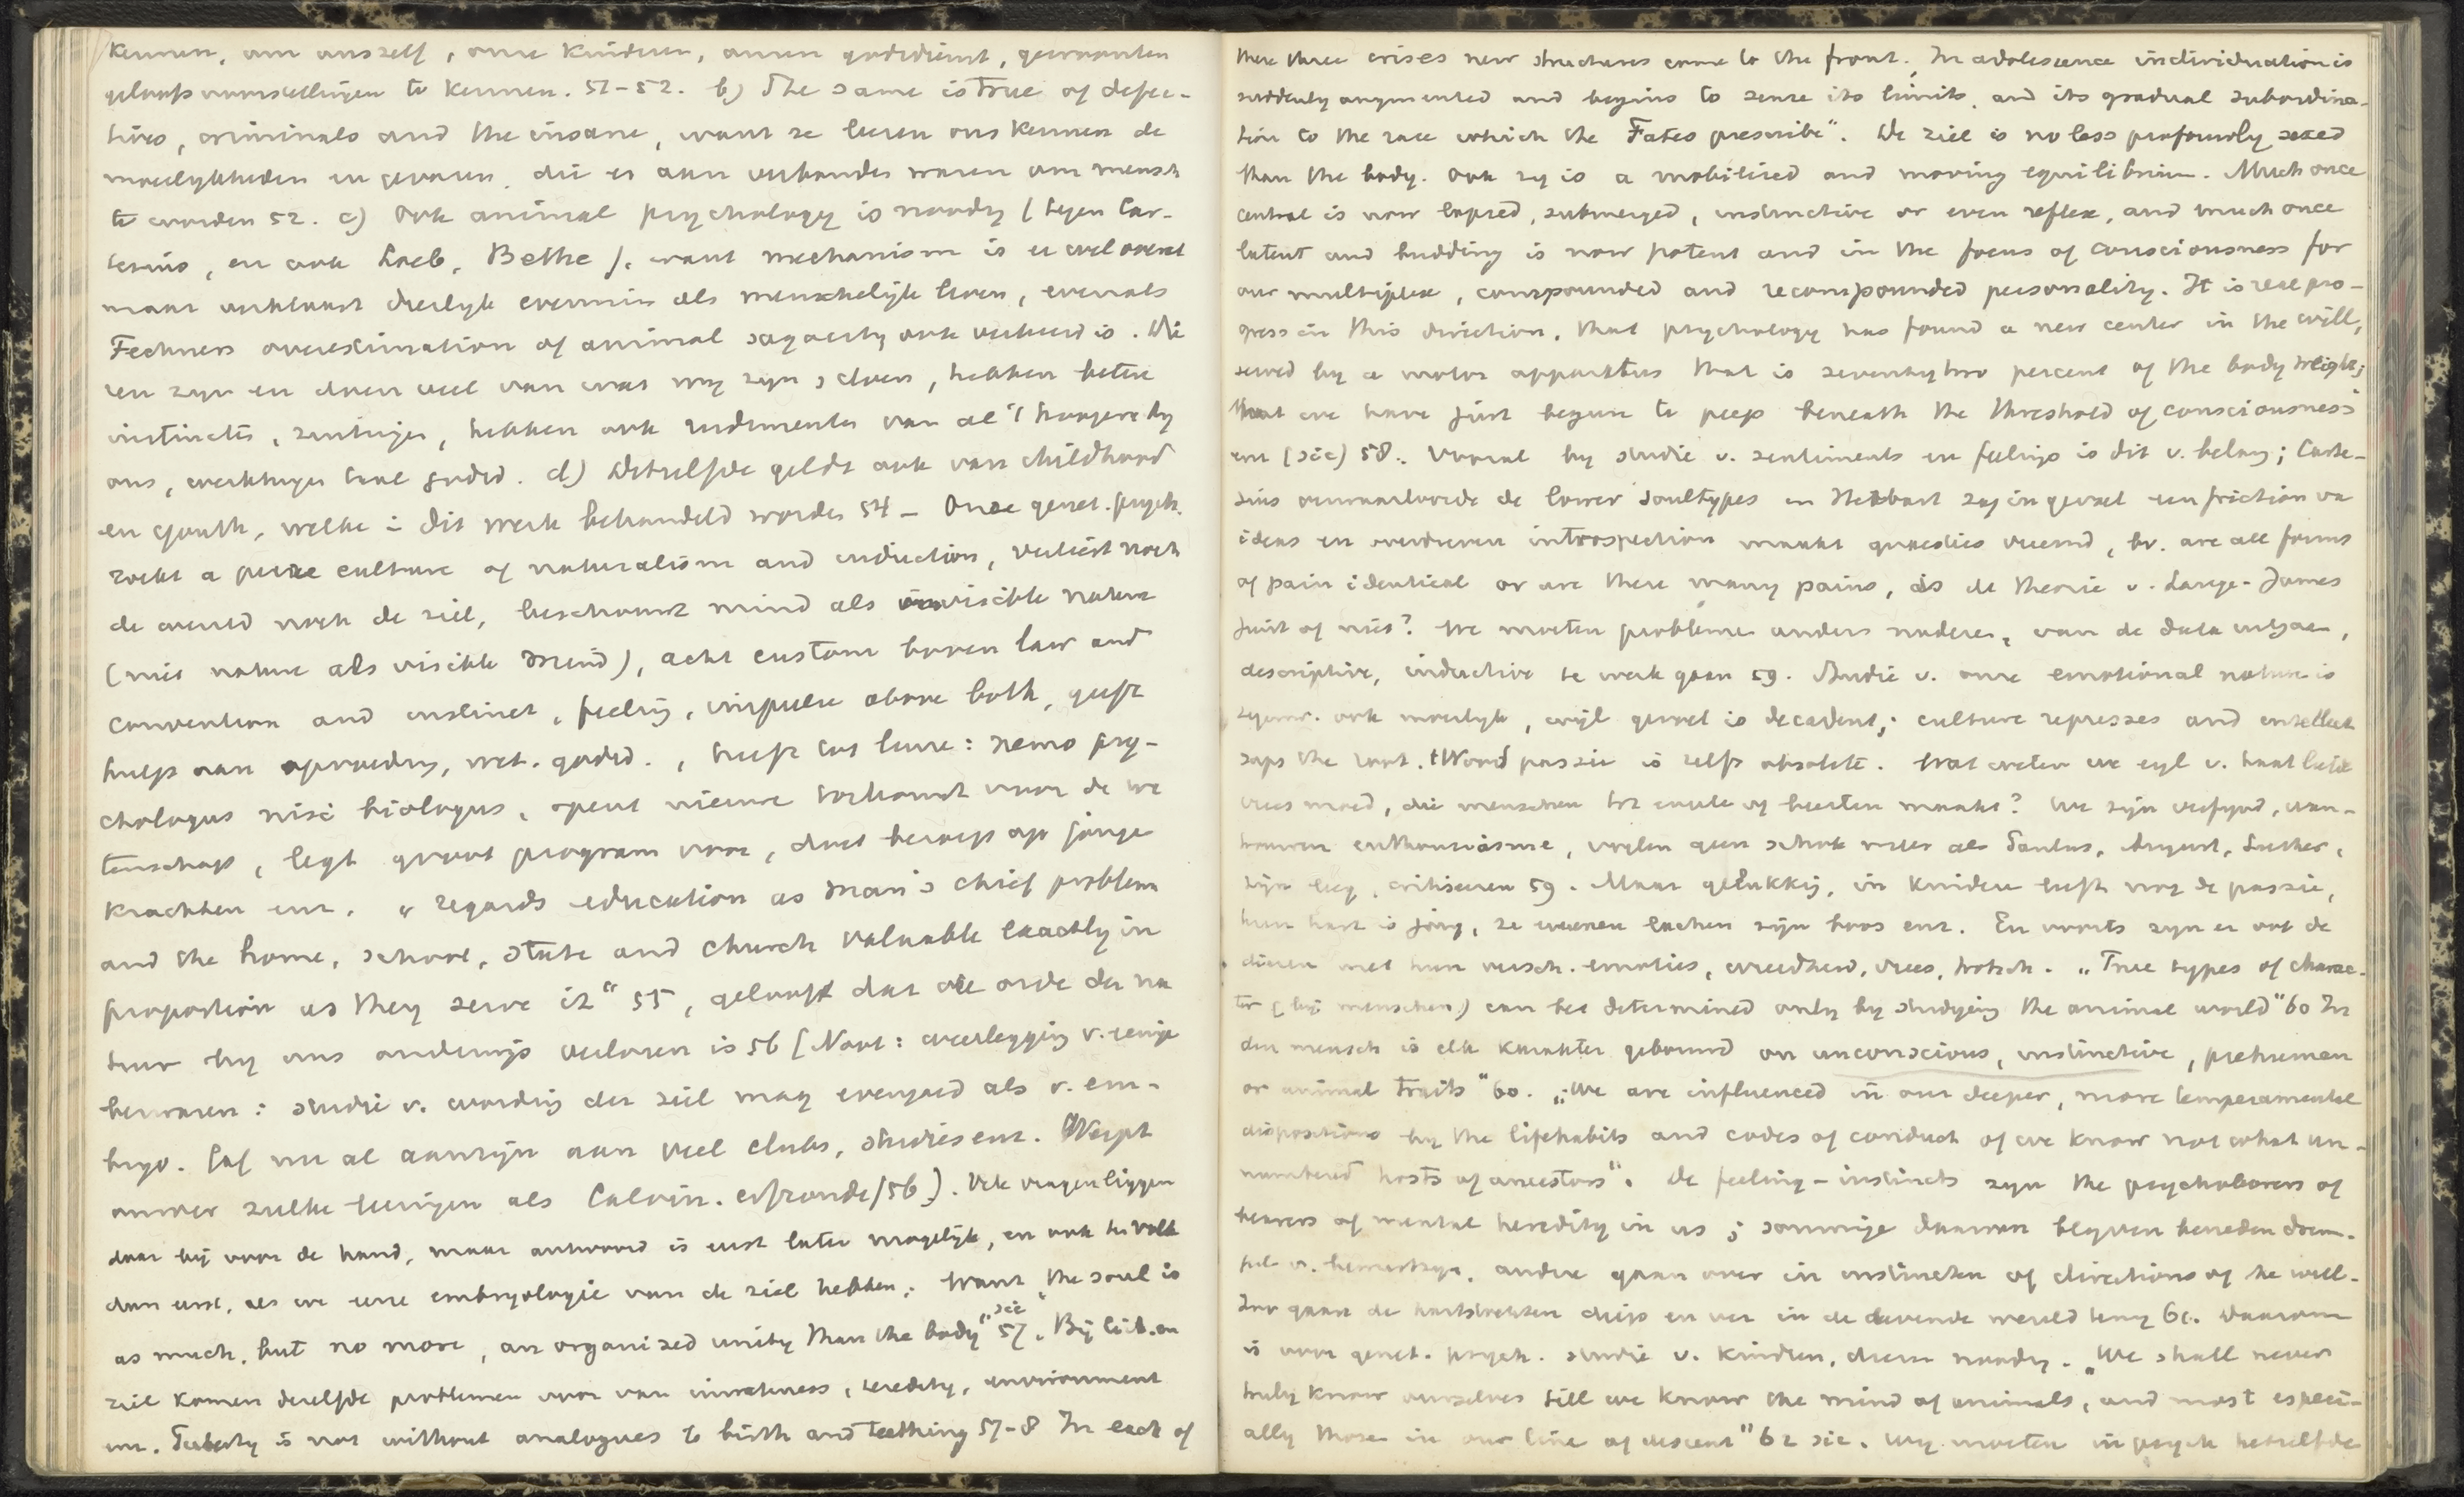 kennen, om onszelf, onze kinderen, onzen godsdienst, gewoonten
geloofsvoorstellingen te kennen. 51-52. b) The same is true of defec-
tives, criminals and the insane, want ze leeren ons kennen de
moeilijkheden en gevaren, die er aan verbonden waren om mensch
te worden 52. c) Ook animal psychology is noodig (tegen Car-
tesius, en ook Loeb, Bethe), want mechanism is er wel overal
maar verklaart dierlijk evenmin als menschelijk leven, evenals
Fechners overestimation of animal sagacity ook verkeerd is. Die
ren zijn en doen veel van wat wij zijn & doen, hebben betere
instincts, zintuigen, hebben ook rudimenten van al 't hoogere bij
ons, werktuigen taal godsd. d) Hetzelfde geldt ook van childhood
en youth, welke in dit werk behandeld worden 54 — Onze genet. psych.
zoekt a pure culture of naturalism and induction, verliest noch
de wereld noch de ziel, beschouwt mind als invisible nature
(niet nature als visible mind), acht custom boven law and
convention and instinct, feeling, impulse above both, geeft
hulp aan opvoeding, wet. godsd., heeft tot leuze: nemo psy-
chologus nisi biologus, opent nieuwe toekomst voor de we
tenschap, legt groot program voor, doet beroep op jonge
krachten enz. „regards education as man's chief problem
and the home, school, state and church valuable exactly in
proportion as they serve it" 55, gelooft dat de orde der na
tuur bij ons onderwijs verloren is 56 [Noot: weerlegging v. eenige
bezwaren: studie v. wording der ziel mag evengoed als v. em-
bryo. Er zijn nu al aan veel clubs, studies enz. Werpt
omver zulke leeringen als Calvin. erfzonde/56). Vele vragen liggen
daar bij voor de hand, maar antwoord is eerst later mogelijk, en ook ten volle
dan eerst, als we eene embryologie van de ziel hebben. Want „the soul is
as much, but no more, an organized unity than the body" sic 57. Bij lich. en
ziel komen dezelfde problemen voor van innateness, heredity, environment
enz. Puberty is not without analogues to birth and teething 57-8 In each of
these three crises new structures come to the front. In adolescence individuation is
suddenly augmented and begins to sense its limits, and its gradual subordina-
tion to the race which the Fates prescribe". De ziel is no less profoundly sexed
than the body. Ook zij is a mobilized and moving equilibrium. Much once
central is now lapsed, submerged, instinctive or even reflex, and much once
latent and budding is now potent and in the focus of consciousness for
our multiplex, compounded and recompounded personality. It is real pro-
gress in this direction, that psychology has found a new center in the will,
served by a motor apparatus that is seventy two percent of the body weight;
that we have just begun to peep beneath the threshold of consciousness
enz (sic) 58. Vooral bij studie v. sentiments en feelings is dit v. belang; Carte-
sius verwaarloosde de lower soultypes en Herbart zag in gevoel een friction van
ideas en moderne introspection maakt quaesties vreemd, bv. are all forms
of pain identical or are there many pains, is de theorie v. Lange-James
juist of niet? We moeten probleme anders naderen, van de data uitgaan,
descriptive, inductive te werk gaan 59. Studie v. onze emotional nature is
tegenw. ook moeilijk, wijl gevoel is decadent; culture represses and intellect
saps the root. 't Woord passie is zelfs obsolete. Wat weten we eigl v. haat liefde
vrees moed, die menschen tot engelen of beesten maakt? We zijn verfijnd, wan-
trouwen enthousiasme, voelen geen schok meer als Paulus, August, Luther,
zijn leeg, critiseeren 59. Maar gelukkig, in kinderen leeft nog de passie,
hun hart is jong, ze weenen lachen zijn boos enz. En voorts zijn er ook de
dieren met hun versch. emoties, wreedheid, vrees, trotsch. „True types of charac-
ter (bij menschen) can be determined only by studying the animal world" 60 In
den mensch is elk karakter gebouwd on unconscious, instinctive, prehuman
or animal traits" 60. „We are influenced in our deeper, more temperamental
dispositions by the lifehabits and codes of conduct of we know not what un-
numbered hosts of ancestors". De feeling-instincts zijn the psychophores of
bearers of mental heredity in us; sommige daarvan blijven beneden drem-
pel v. bewustzijn, andere gaan over in instincten of directions of the will.
Zoo gaan de hartstochten diep en ver in de levende wereld terug 61. Daarom
is voor genet. psych. studie v. kinderen, dieren noodig. „We shall never
truly know ourselves till we know the mind of animals, and most especi-
ally those in our line of descent" 62 sic. Wij moeten in psych hetzelfde